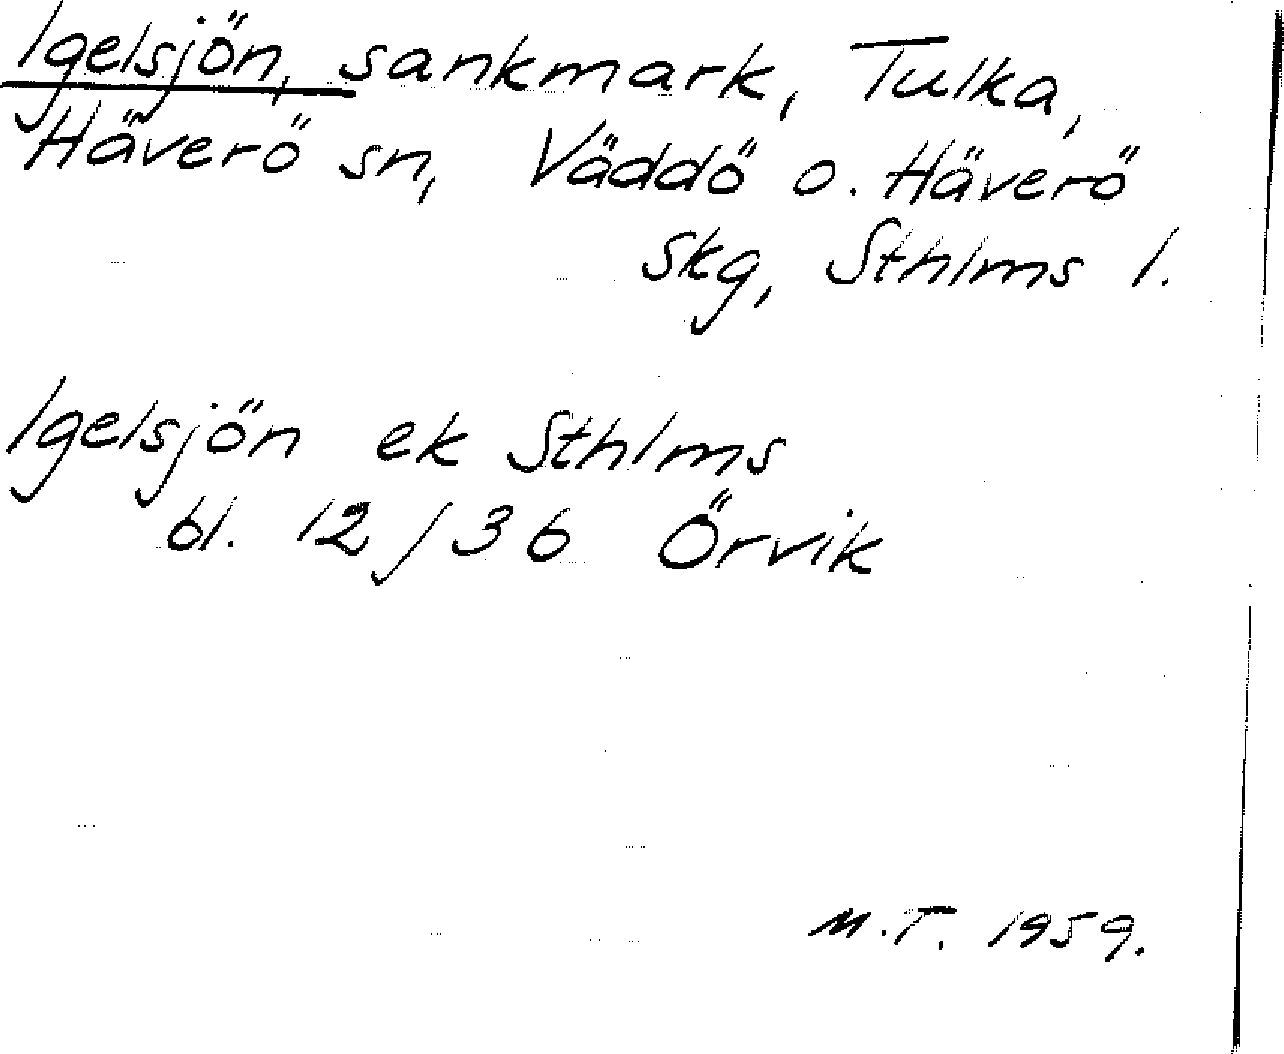 Igelsjön, sankmark, Tulka,
Häverö sn, Väddö o. Häverö
skg, Sthlms l.
Igelsjön ek Sthlms
bl. 12/36 Örvik
M.T. 1959.